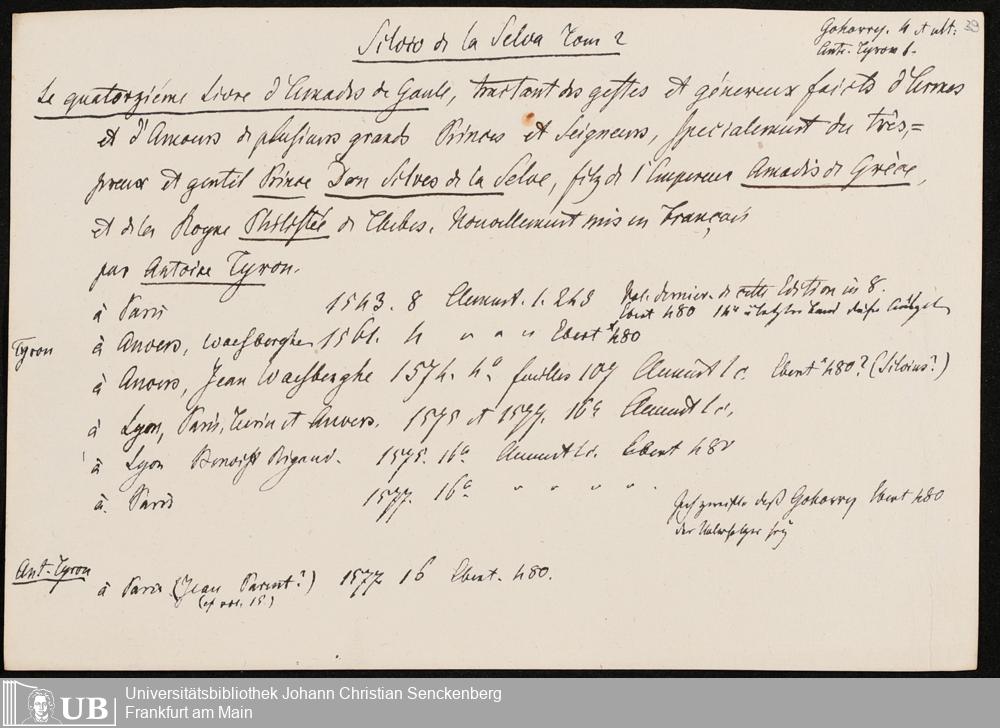 Silvio de la Selva Tom 2
Gohorry. 4 et ult: 39
Ant. Tyron 1.
Le quatorziéme Livre d'Amadis de Gaule, traitant des gestes et généreux faicts d'Armes
et d'Amours de plusieurs grands Princes et Seigneurs, specialement du très=
preux et gentil Prince Don Silves de la Selve, filz de l'Empereur Amadis de Grèce,
et de la Royne de Thebes. Nouvellement mis en Français
par Antoine Tyron.
à Paris 1543. 8 1. 248 dernier. de cette Edition in 8.
Ebert 480
Tyron à Anvers, Waesberghe 1561. 4 " " " Ebert 480
à Anvers, Jean Waesberghe 1574. 4° feuilles 107 l c. Ebert 480? (Silvius?)
à Lyon, Paris, Turin et Anvers. 1575 et 1577. 16° l c.
à Lyon Benoist Rigaud. 1575. 16° l c. Ebert 480
à Paris 1577. 16° " " " "
Ich zweifle daß Gohorry Ebert 480
der Uebersetzer sey
Ant. Tyron à Paris (Jean Parent?) 1577 16 Ebert. 480.
(cf vol. 15)
UB Universitätsbibliothek Johann Christian Senckenberg
Frankfurt am Main